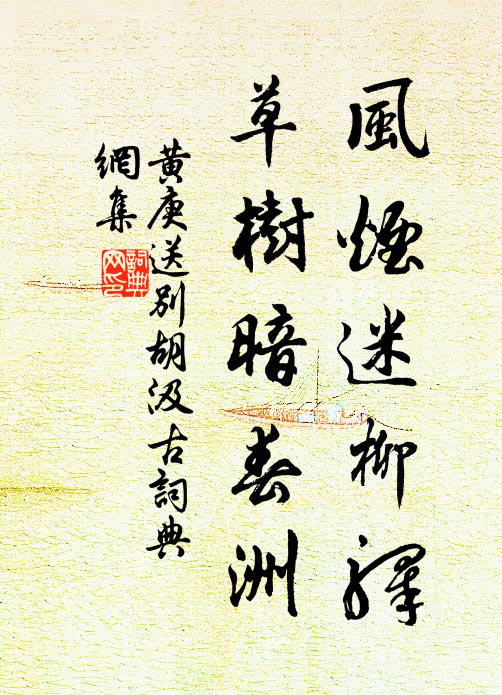 風煙迷柳驛
草樹暗春洲
黄庚送別胡汲古詞典
網集
詞典
网印